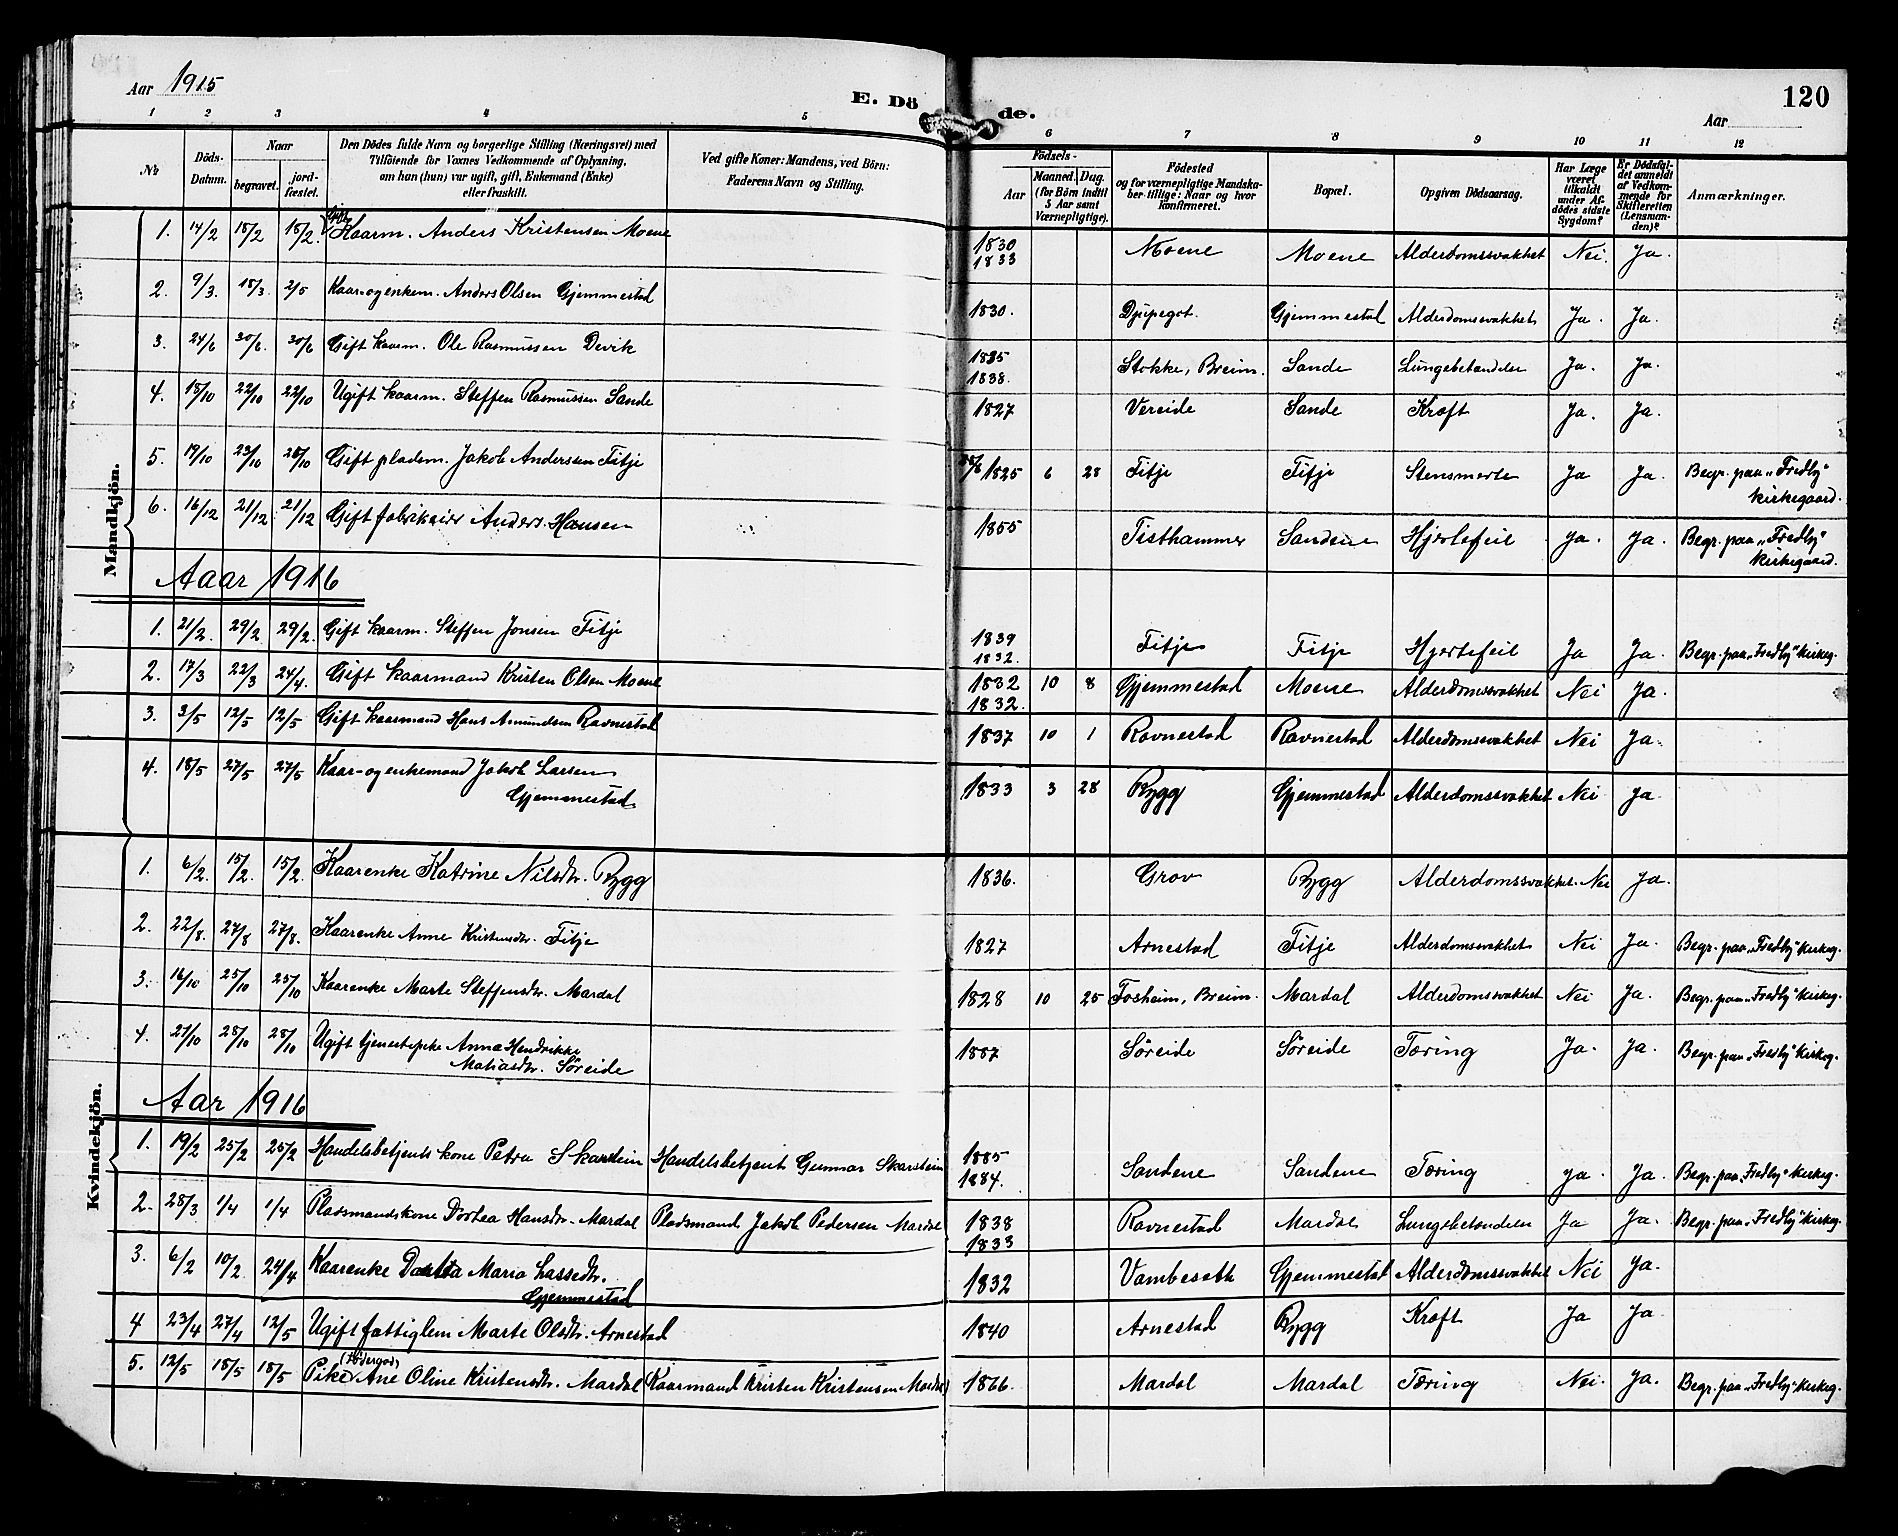 Aar 1915
E. Dö
de.
120
Aar
1 2 3 4 5 6 7 8 9 10 11 12
No
Döds-Datum.
Naar
begravet.
jord-fæstet.
Den Dödes fulde Navn og borgerlige Stilling (Næringsvei) med
Tilföiende for Voxnes Vedkommende af Oplysning,
om han (hun) var ugift, gift, Enkemand (Enke)
eller fraskilt.
Ved gifte Koner: Mandens, ved Börn:
Faderens Navn og Stilling.
Födsels-
Aar
Maaned. Dag.
(for Börn indtil
5 Aar samt
Værnepligtige).
Födested
og for værnepligtige Mandska-
ber tillige: Naar og hvor
konfirmeret.
Bopæl.
Opgiven Dödsaarsag.
Har Læge
været
tilkaldt
under Af-
dödes sidste
Sygdom?
Er Dödsfal-
det anmeldt
af Vedkom-
mende for
Skifteretten
(Lensman-
den)?
Anmærkninger.
Mandkjön.
1. 14/2 18/2 18/2. Gift Kaarm. Anders Kristensen Moene 1830 1833 Moene Moene Alderdomssvakhet Nei. Ja.
2. 9/3. 18/3. 2/5 Kaar-og enkem. Anders Olsen Gjemmestad 1830. Djupegot. Gjemmestad Alderdomssvakhet Ja. Ja.
3. 24/6 30/6. 30/6 Gift kaarm. Ole Rasmussen Devik 1835 1838. Stokke, Breim. Sande Lungebetændelse Ja. Ja.
4. 18/10 22/10 22/10 Ugift kaarm. Steffen Rasmussen Sande 1827 Vereide Sande Kræft Ja. Ja.
5. 19/10 23/10 28/10 Gift pladsm. Jakob Andersen Fitje 1825 6 28 Fitje Fitje Stensmerte Ja Ja. Begr. paa "Fredly" kirkegaard.
6. 16/12 21/12 21/12 Gift fabrikeier Anders Hansen 1855 Tisthammer Sandene Hjertefeil Ja. Ja. Begr. paa "Fredly" kirkegaard.
Aaar 1916
1. 21/2. 29/2 29/2. Gift kaarm. Steffen Jonsen Fitje 1839 1832. Fitje Fitje Hjertefeil Ja Ja. Begr. paa "Fredly" kirkeg.
2. 17/3 22/3 24/4. Gift kaarmand Kristen Olsen Moene 1832 1832. 10 8 Gjemmestad Moene Alderdomssvakhet Nei Ja.
3. 3/5 12/5 12/5 Gift kaarmand Hans Amundsen Ravnestad 1837 10 1 Ravnestad Ravnestad Alderdomssvakhet Nei Ja.
4. 18/5 27/5 27/5 Kaar-og enkemand Jakob Larsen
Gjemmestad 1833 3 28 Rygg Gjemmestad Alderdomssvakhet Nei Ja.
Kvindekjön.
1. 6/2. 15/2. 15/2. Kaarenke Katrine Nilsdtr. Rygg 1836. Grov Rygg Alderdomssvakhet. Nei Ja.
2. 22/8. 27/8 27/8. Kaarenke Anne Kristensdtr. Fitje 1827 Arnestad Fitje Alderdomssvakhet Nei Ja. Begr. paa "Fredly" kirkeg.
3. 16/10 25/10 25/10 Kaarenke Marte Steffensdtr. Mardal 1828 10 25 Fosheim, Breim. Mardal Alderdomssvakhet Nei Ja. Begr. paa "Fredly" kirkeg.
4. 21/10 28/10 28/10 Ugift tjenestepike Anna Hendrikke
Matiasdtr. Söreide 1887 Söreide Söreide Tæring Ja. Ja. Begr. paa "Fredly" kirkeg.
Aar 1916
1. 19/2 25/2 25/2 Handelsbetjents kone Petra Skarstein Handelsbetjent Gunnar Skarstein 1885 1884. Sandene Sandene Tæring Ja. Ja. Begr. paa "Fredly" kirkeg.
2. 28/3 1/4 1/4 Pladsmandskone Dortea Hansdtr. Mardal Pladsmand Jakob Pedersen Mardal 1838 1833 Ravnestad Mardal Lungebetændelse Ja Ja. Begr. paa "Fredly" kirkeg.
3. 6/2 10/2. 24/4 Kaarenke Maria Lassedtr.
Gjemmestad 1832 Vambeseth Gjemmestad Alderdomssvakhet Nei Ja.
4 23/4 27/4 12/5 Ugift fattiglem Marte Olsdtr. Arnestad 1840 Arnestad Rygg Kræft Ja Ja.
5. 12/5 18/5 18/5 Pike Ane Oline Kristensdtr. Mardal Kaarmand Kristen Kristensen Mardal 1866. Mardal Mardal Tæring Nei. Ja. Begr. paa "Fredly" kirkeg.